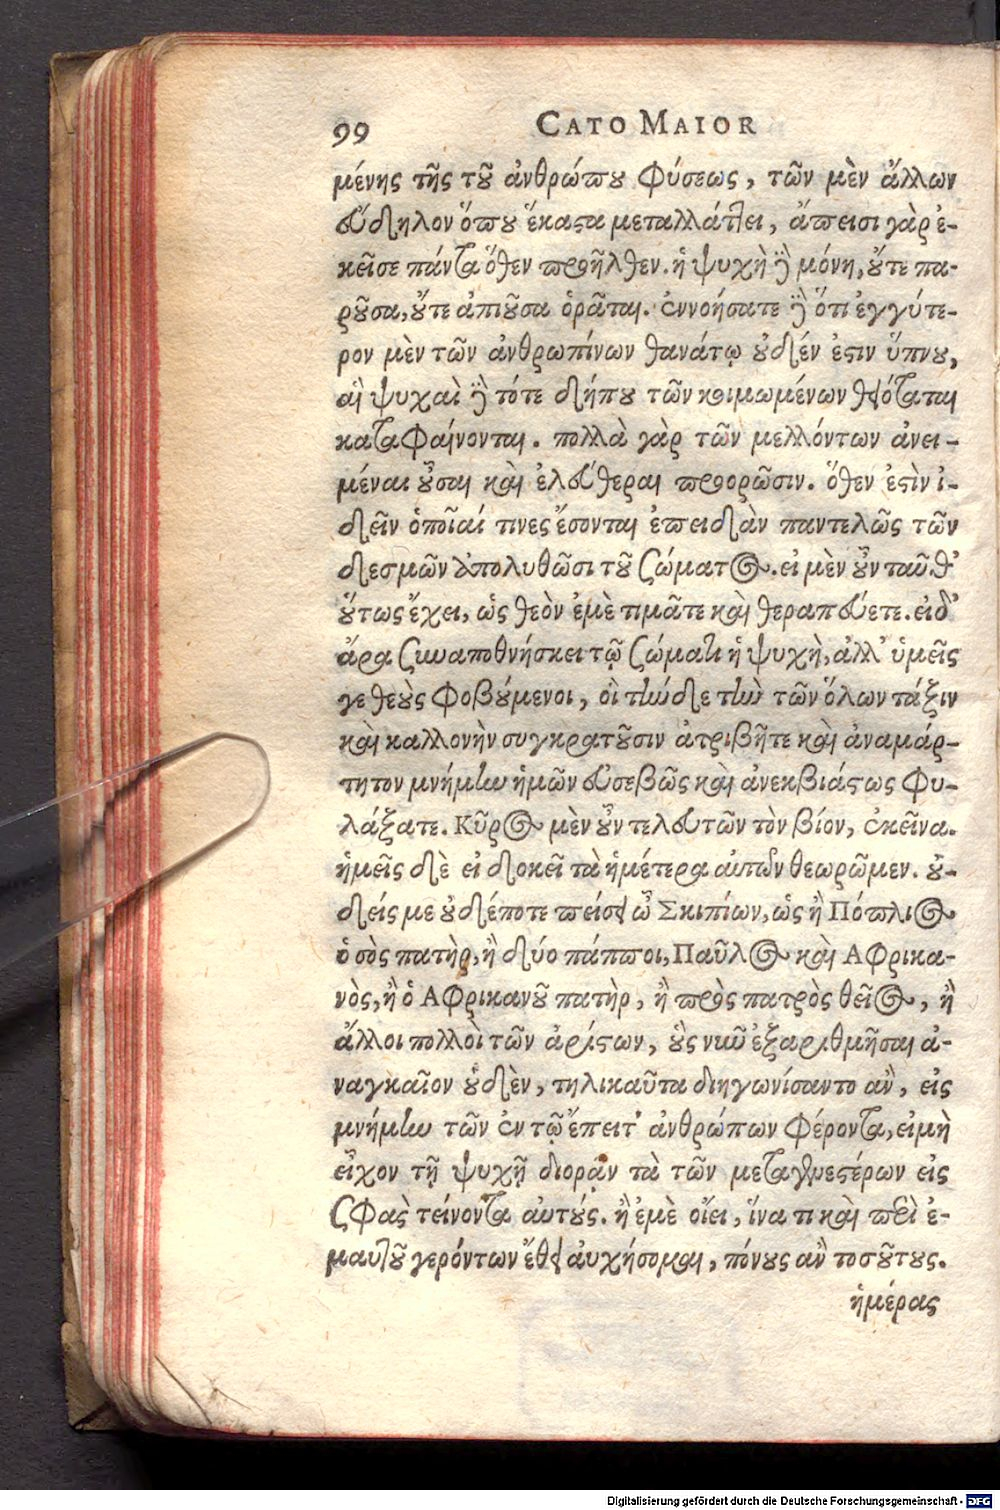 99 CATO MAIOR
μένης τῆς τȣ͂ ἀνθρώπȣ φύσεως, τῶν μὲν ἄλλων
εὔδηλον ὅπȣ ἕκαστα μεταλλάττει, ἄπεισι γὰρ ἐ-
κεῖσε πάντα ὅθεν προῆλθεν. ἡ ψυχὴ δὲ μόνη, ȣ̓́τε πα-
ρȣ͂σα, ȣ̓́τε ἀπιȣ͂σα ὁρᾶται. ἐννοήσατε δὲ ὅτι ἐγγύτε-
ρον μὲν τῶν ἀνθρωπίνων θανάτῳ ȣ̓δέν ἐστιν ὕπνȣ,
αἱ ψυχαὶ δὲ τότε δήπȣ τῶν κοιμωμένων θειόταται
καταφαίνονται. πολλὰ γὰρ τῶν μελλόντων ἀνει-
μέναι ȣ̓͂σαι καὶ ἐλεύθεραι προορῶσιν. ὅθεν ἐστὶν ἰ-
δεῖν ὁποῖαί τινες ἔσονται ἐπειδὰν παντελῶς τῶν
δεσμῶν ἀπολυθῶσι τȣ͂ σώματος. εἰ μὲν ȣ̓͂ν ταῦθ’
ȣ̔́τως ἔχει, ὡς θεὸν ἐμὲ τιμᾶτε καὶ θεραπεύετε. εἰ δ’
ἄρα συναποθνήσκει τῷ σώματι ἡ ψυχὴ, ἀλλ’ ὑμεῖς
γε θεȣ̀ς φοβȣ́μενοι, οἳ τήνδε τὴν τῶν ὅλων τάξιν
καὶ καλλονὴν συγκρατȣ͂σιν ἀτριβῆτε καὶ ἀναμάρ-
τητον μνήμην ἡμῶν εὐσεβῶς καὶ ἀνεκβιάστως φυ-
λάξατε. Κῦρος μὲν ȣ̓͂ν τελευτῶν τὸν βίον, ἐκεῖνα.
ἡμεῖς δὲ εἰ δοκεῖ τὰ ἡμέτερα αὐτῶν θεωρῶμεν. ȣ̓-
δείς με ȣ̓δέποτε πείσει ὦ Σκιπίων, ὡς ἢ Πόπλιος
ὁ σὸς πατὴρ, ἢ δύο πάπποι, Παῦλος καὶ Αφρικα-
νὸς, ἢ ὁ Αφρικανȣ͂ πατὴρ, ἢ πρὸς πατρὸς θεῖος, ἢ
ἄλλοι πολλοὶ τῶν ἀρίστων, ȣ̔̀ς νῦν ἐξαριθμῆσαι ἀ-
ναγκαῖον ȣ̓δὲν, τηλικαῦτα διηγωνίσαντο ἂν, εἰς
μνήμην τῶν ἐν τῷ ἔπειτ’ ἀνθρώπων φέροντα, εἰ μὴ
εἶχον τῇ ψυχῇ διορᾷν τὰ τῶν μεταγενεστέρων εἰς
σφᾶς τείνοντα αὐτȣ́ς. ἢ ἐμὲ οἴει, ἵνα τι καὶ περὶ ἐ-
μαυτȣ͂ γερόντων ἔθει αὐχήσομαι, πόνȣς ἂν τοσȣ́τȣς.
ἡμέρας
Digitalisierung gefördert durch die Deutsche Forschungsgemeinschaft - DFG